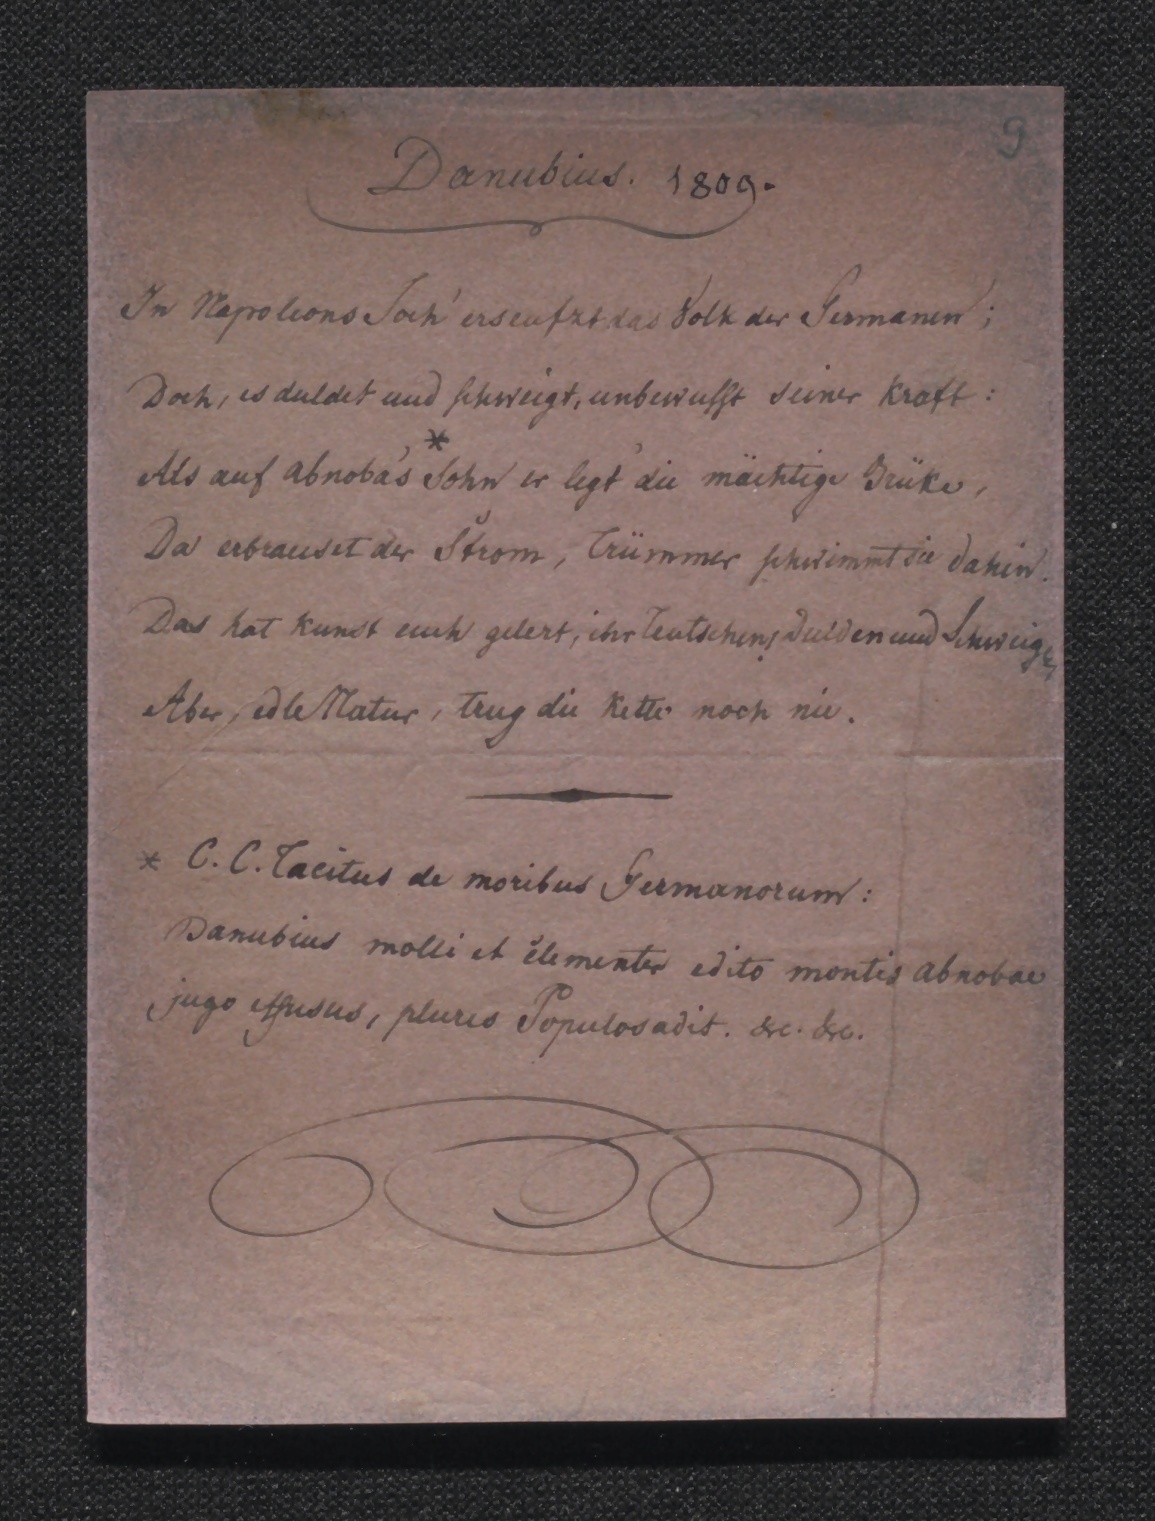 9
Danubius. 1809.
In Napoleons Joch' erseufzt das Volk der Germanen;
Doch, es duldet und schweigt, unbewusst seiner Kraft:
Als auf Abnoba's * Sohn er legt' die mächtige Brüke,
Da erbrauset der Strom, Trümmer schwimmt sie dahin.
Das hat Kunst euch gelert, ihr Teutschen, dulden und Schweigen,
Aber, edle Natur, trug die Kette noch nie.
* C. C. Tacitus de moribus Germanorum:
Danubius molli et clementer edito montis Abnobae
jugo effusus, plures Populos adit. &c. &c.